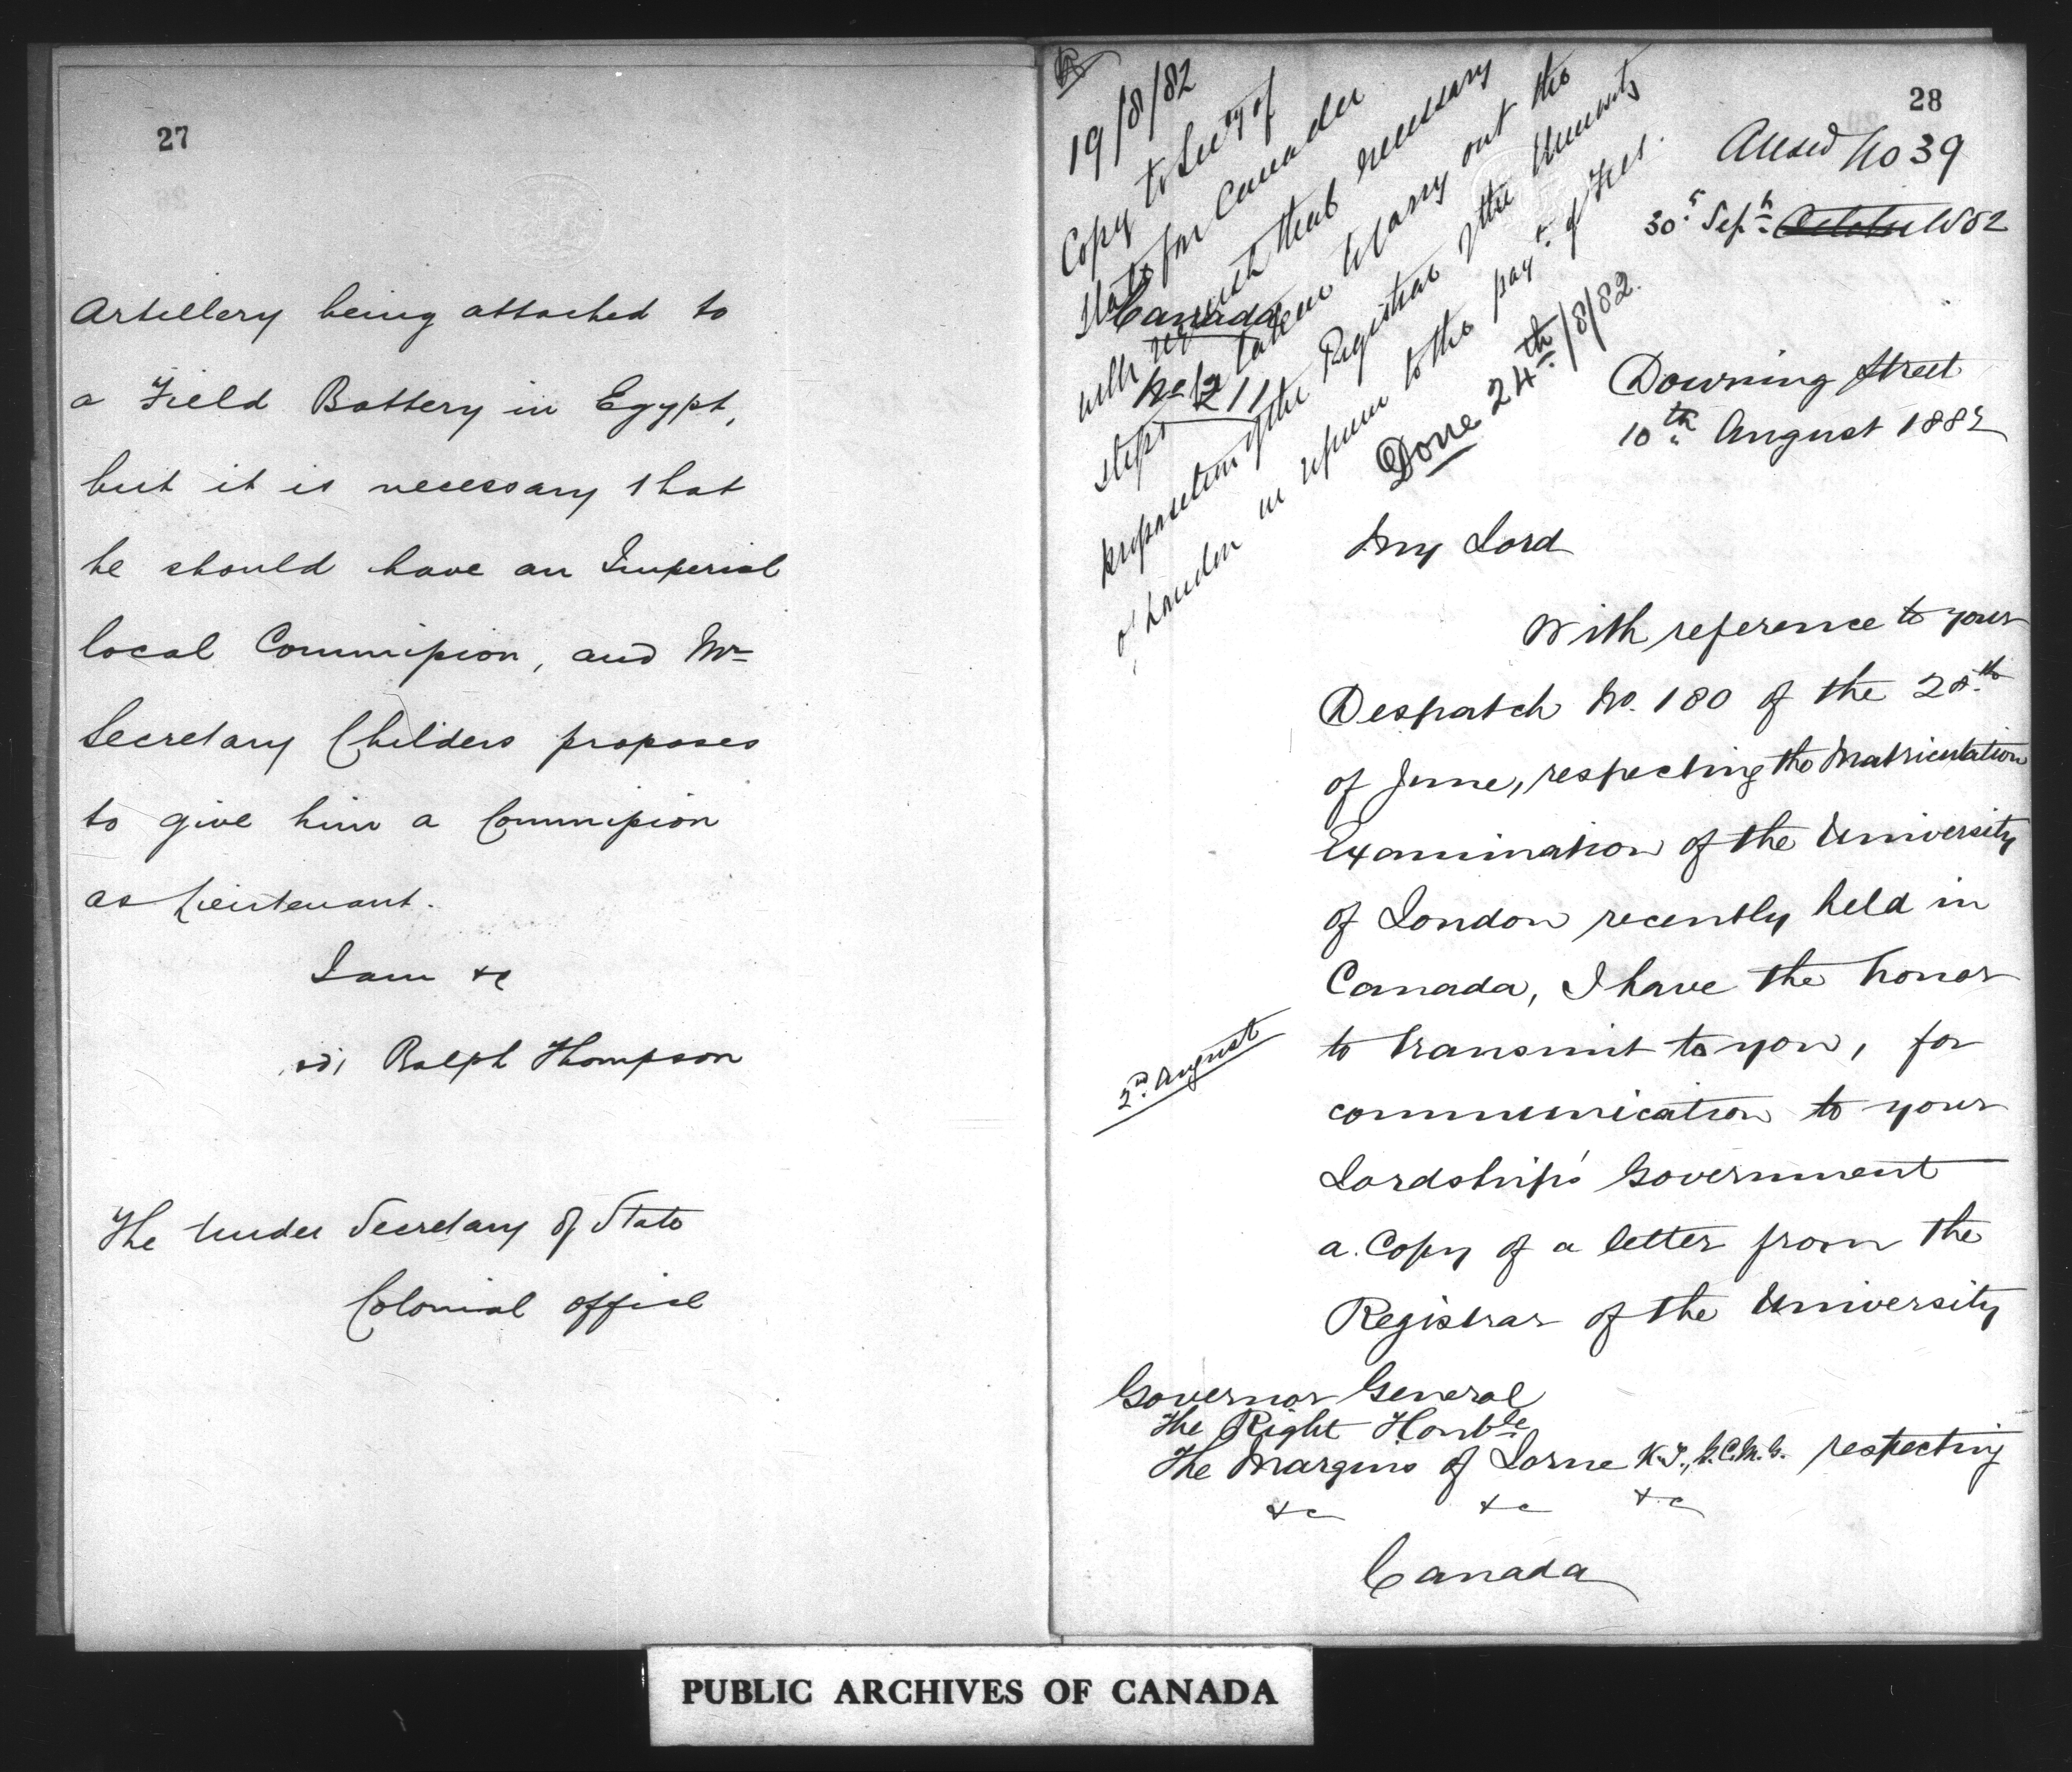 27
Artillery being attached to
a Field Battery in Egypt,
but it is necessary that
he should have an Imperial
local Commission, and Mr
Secretary Childers proposes
to give him a Commission
as Lieutenant.
I am &c
sd, Ralph Thompson
The Under Secretary of State
Colonial Office
28
No 39
30 Sept October 1882
19/8/82
Copy to Secy of
State for Canada
with request that necessary
steps be taken to carry out the
proposition of the Registrar of the University
of London in regard to the payt of Fees.
Done 24th/8/82.
Canada
No 211
Downing Street
10th August 1882
My Lord
With reference to your
Despatch No. 180 of the 28th
of June, respecting the Matriculation
Examination of the University
of London recently held in
Canada, I have the honor
to transmit to you, for
2nd August
communication to your
Lordship's Government
a Copy of a letter from the
Registrar of the University
Governor General
The Right Honble
The Marquis of Lorne K.T., G.C.M.G. respecting
&c &c &c
Canada
PUBLIC ARCHIVES OF CANADA